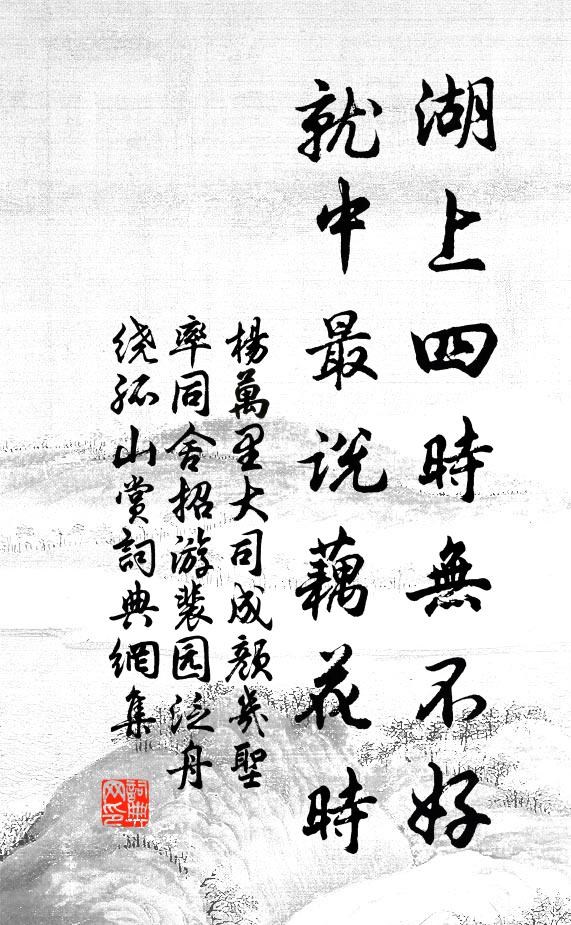 湖上四時無不好
就中最说藕花時
楊萬里大司成顏幾聖
率同舍招游裴园泛舟
绕孤山賞詞典網集
詞典网印